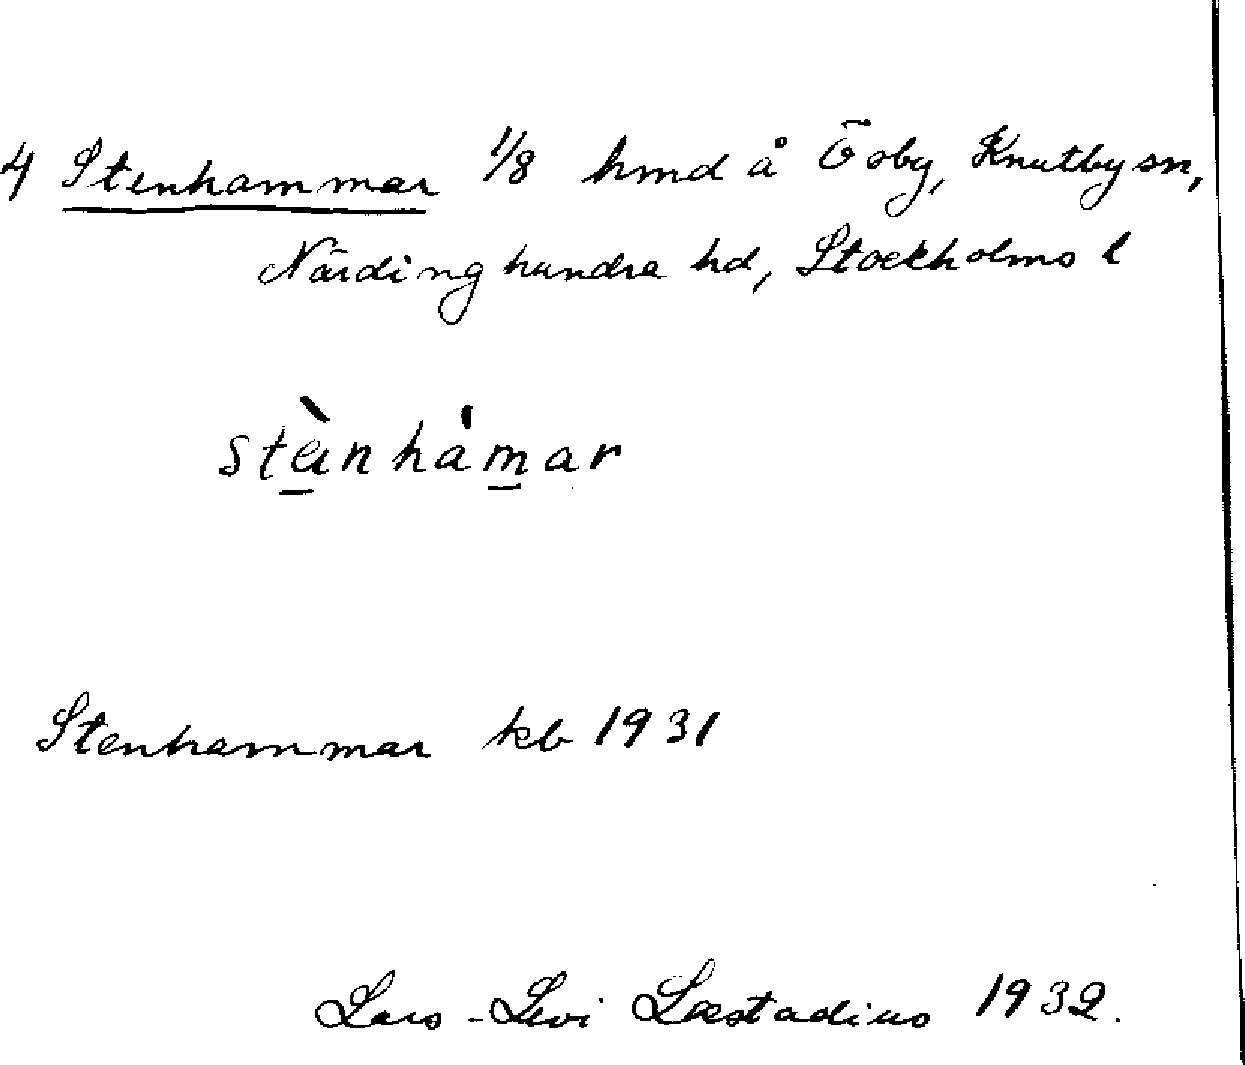 4 Stenhammar 1/8 hmd å Ösby, Knutby sn,
Närdinghundra hd, Stockholms l
stènhámar
Stenhammar kb 1931
Lars-Levi Læstadius 1932.